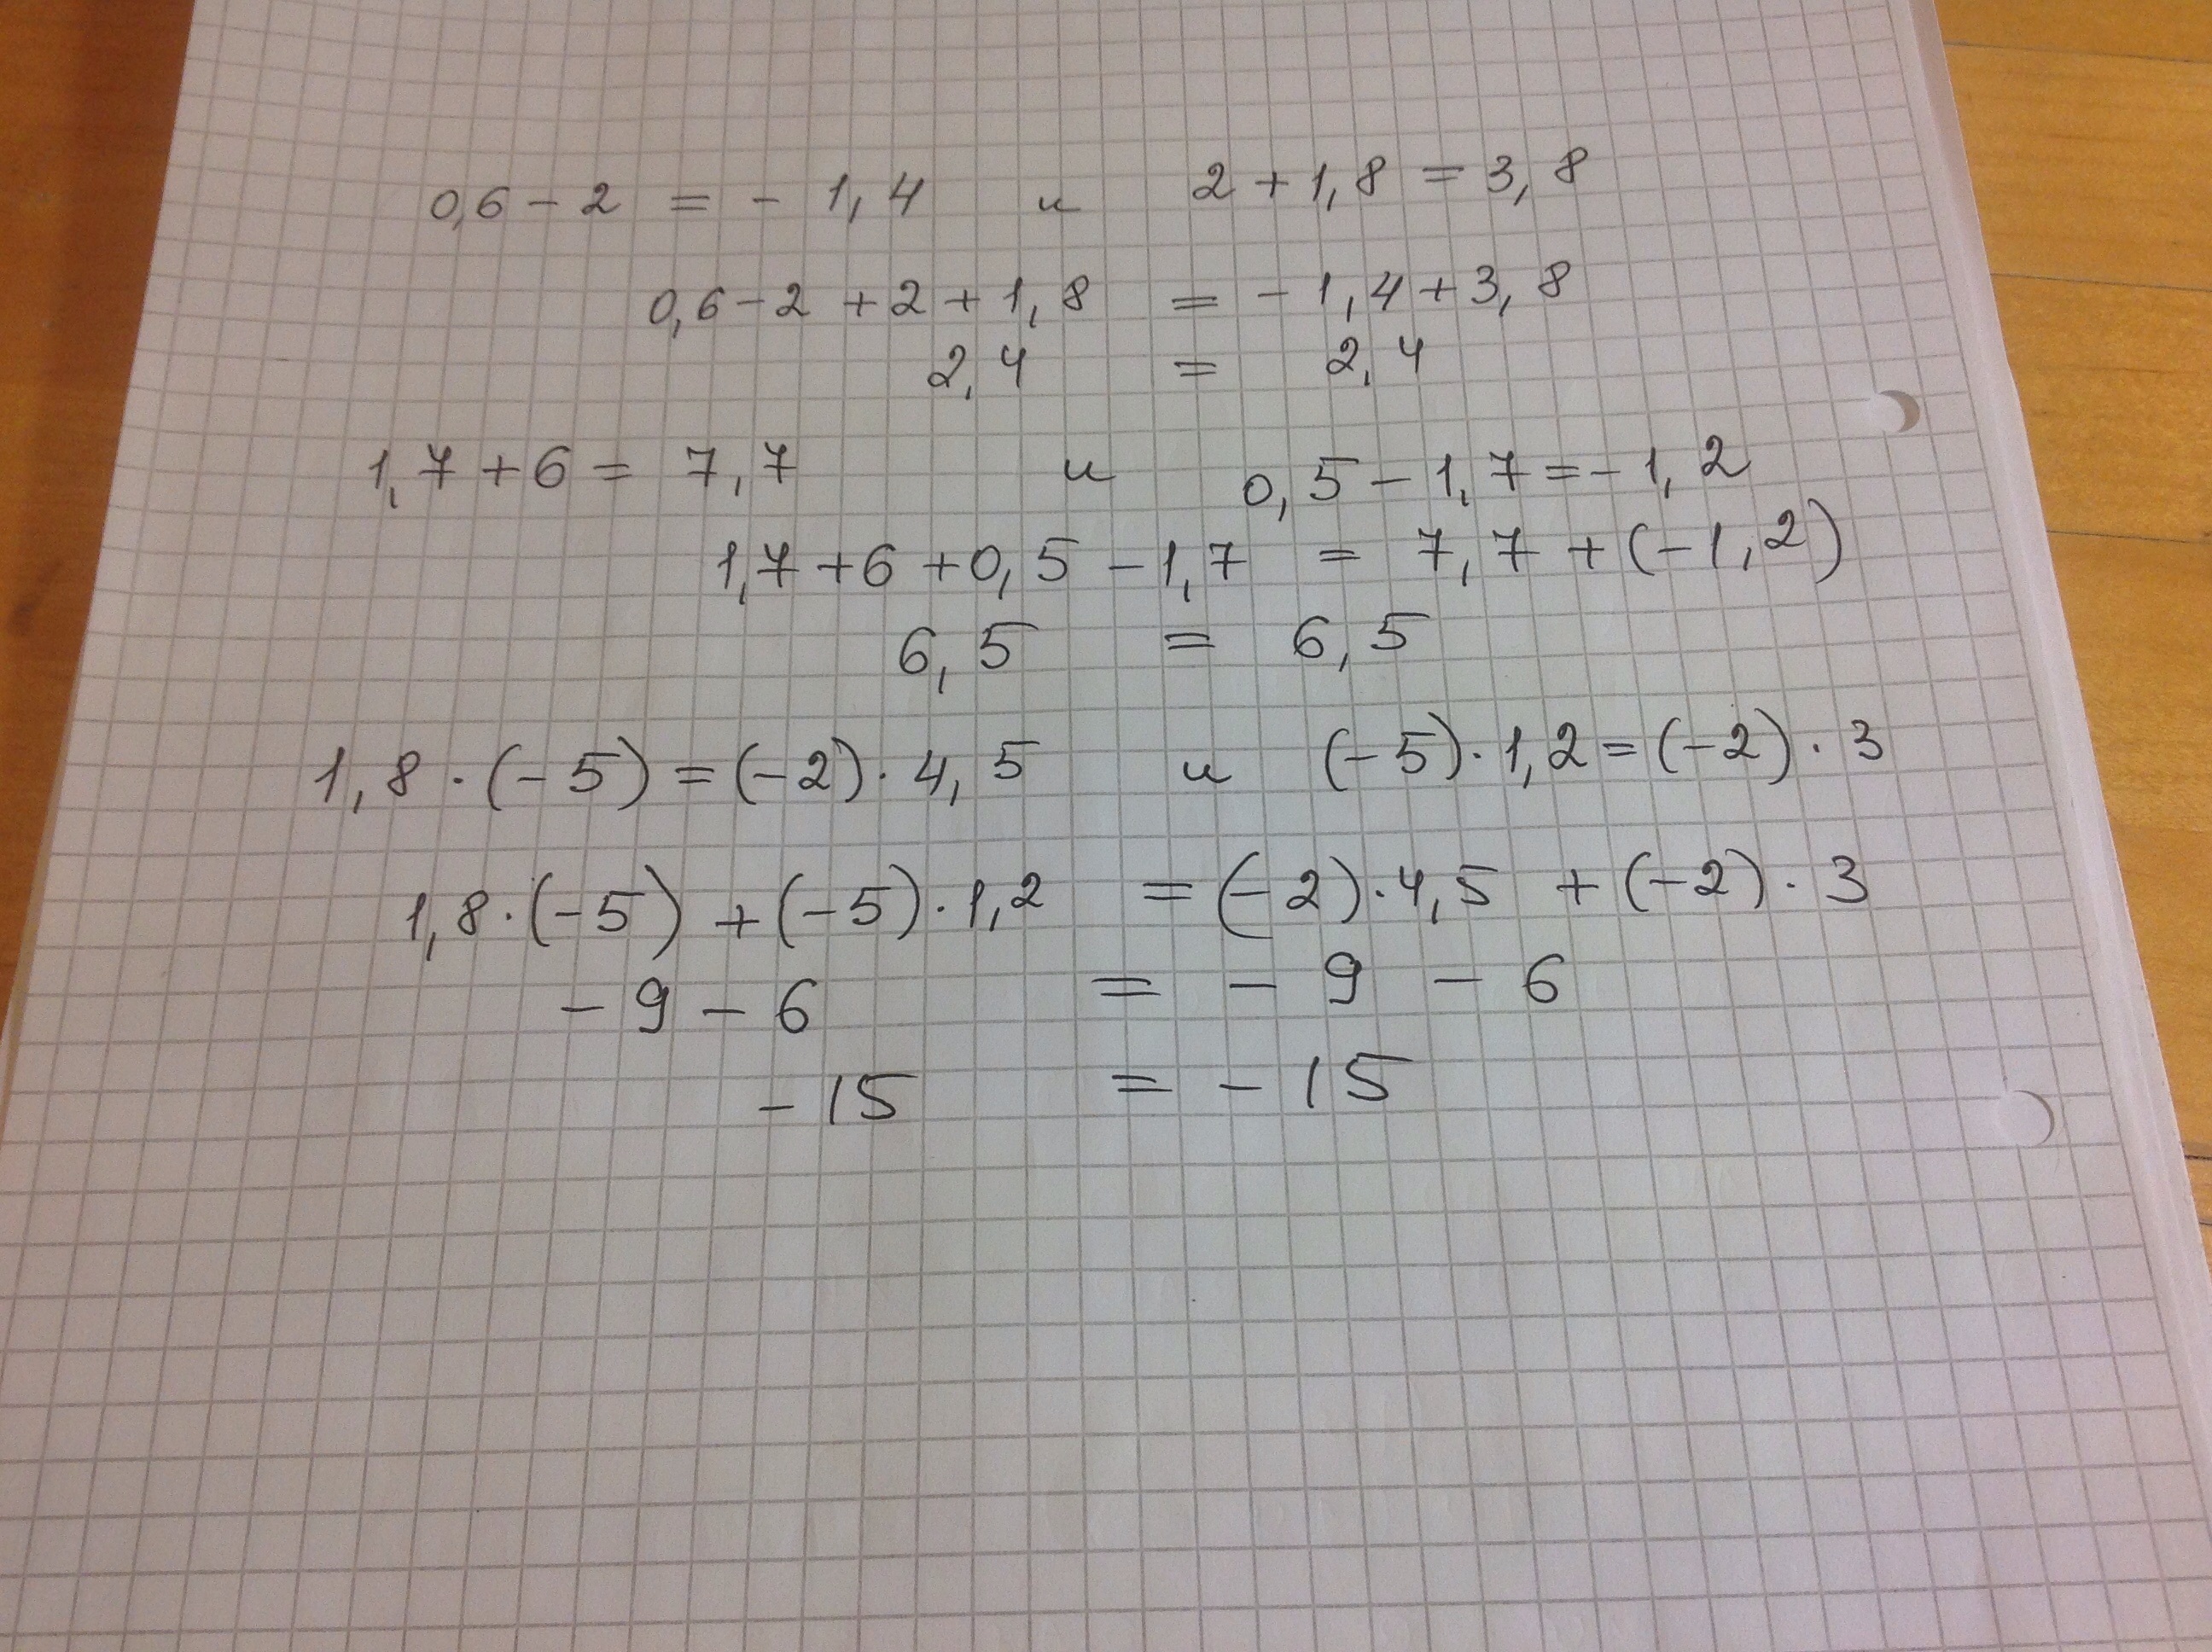 0,6 - 2 = - 1,4 и 2 + 1,8 = 3,8
0,6 - 2 + 2 + 1,8 = - 1,4 + 3,8
2,4 = 2,4
1,7 + 6 = 7,7 и 0,5 - 1,7 = - 1,2
1,7 + 6 + 0,5 - 1,7 = 7,7 + (-1,2)
6,5 = 6,5
1,8 · (-5) = (-2) · 4,5 и (-5) · 1,2 = (-2) · 3
1,8 · (-5) + (-5) · 1,2 = (-2) · 4,5 + (-2) · 3
- 9 - 6 = - 9 - 6
- 15 = - 15